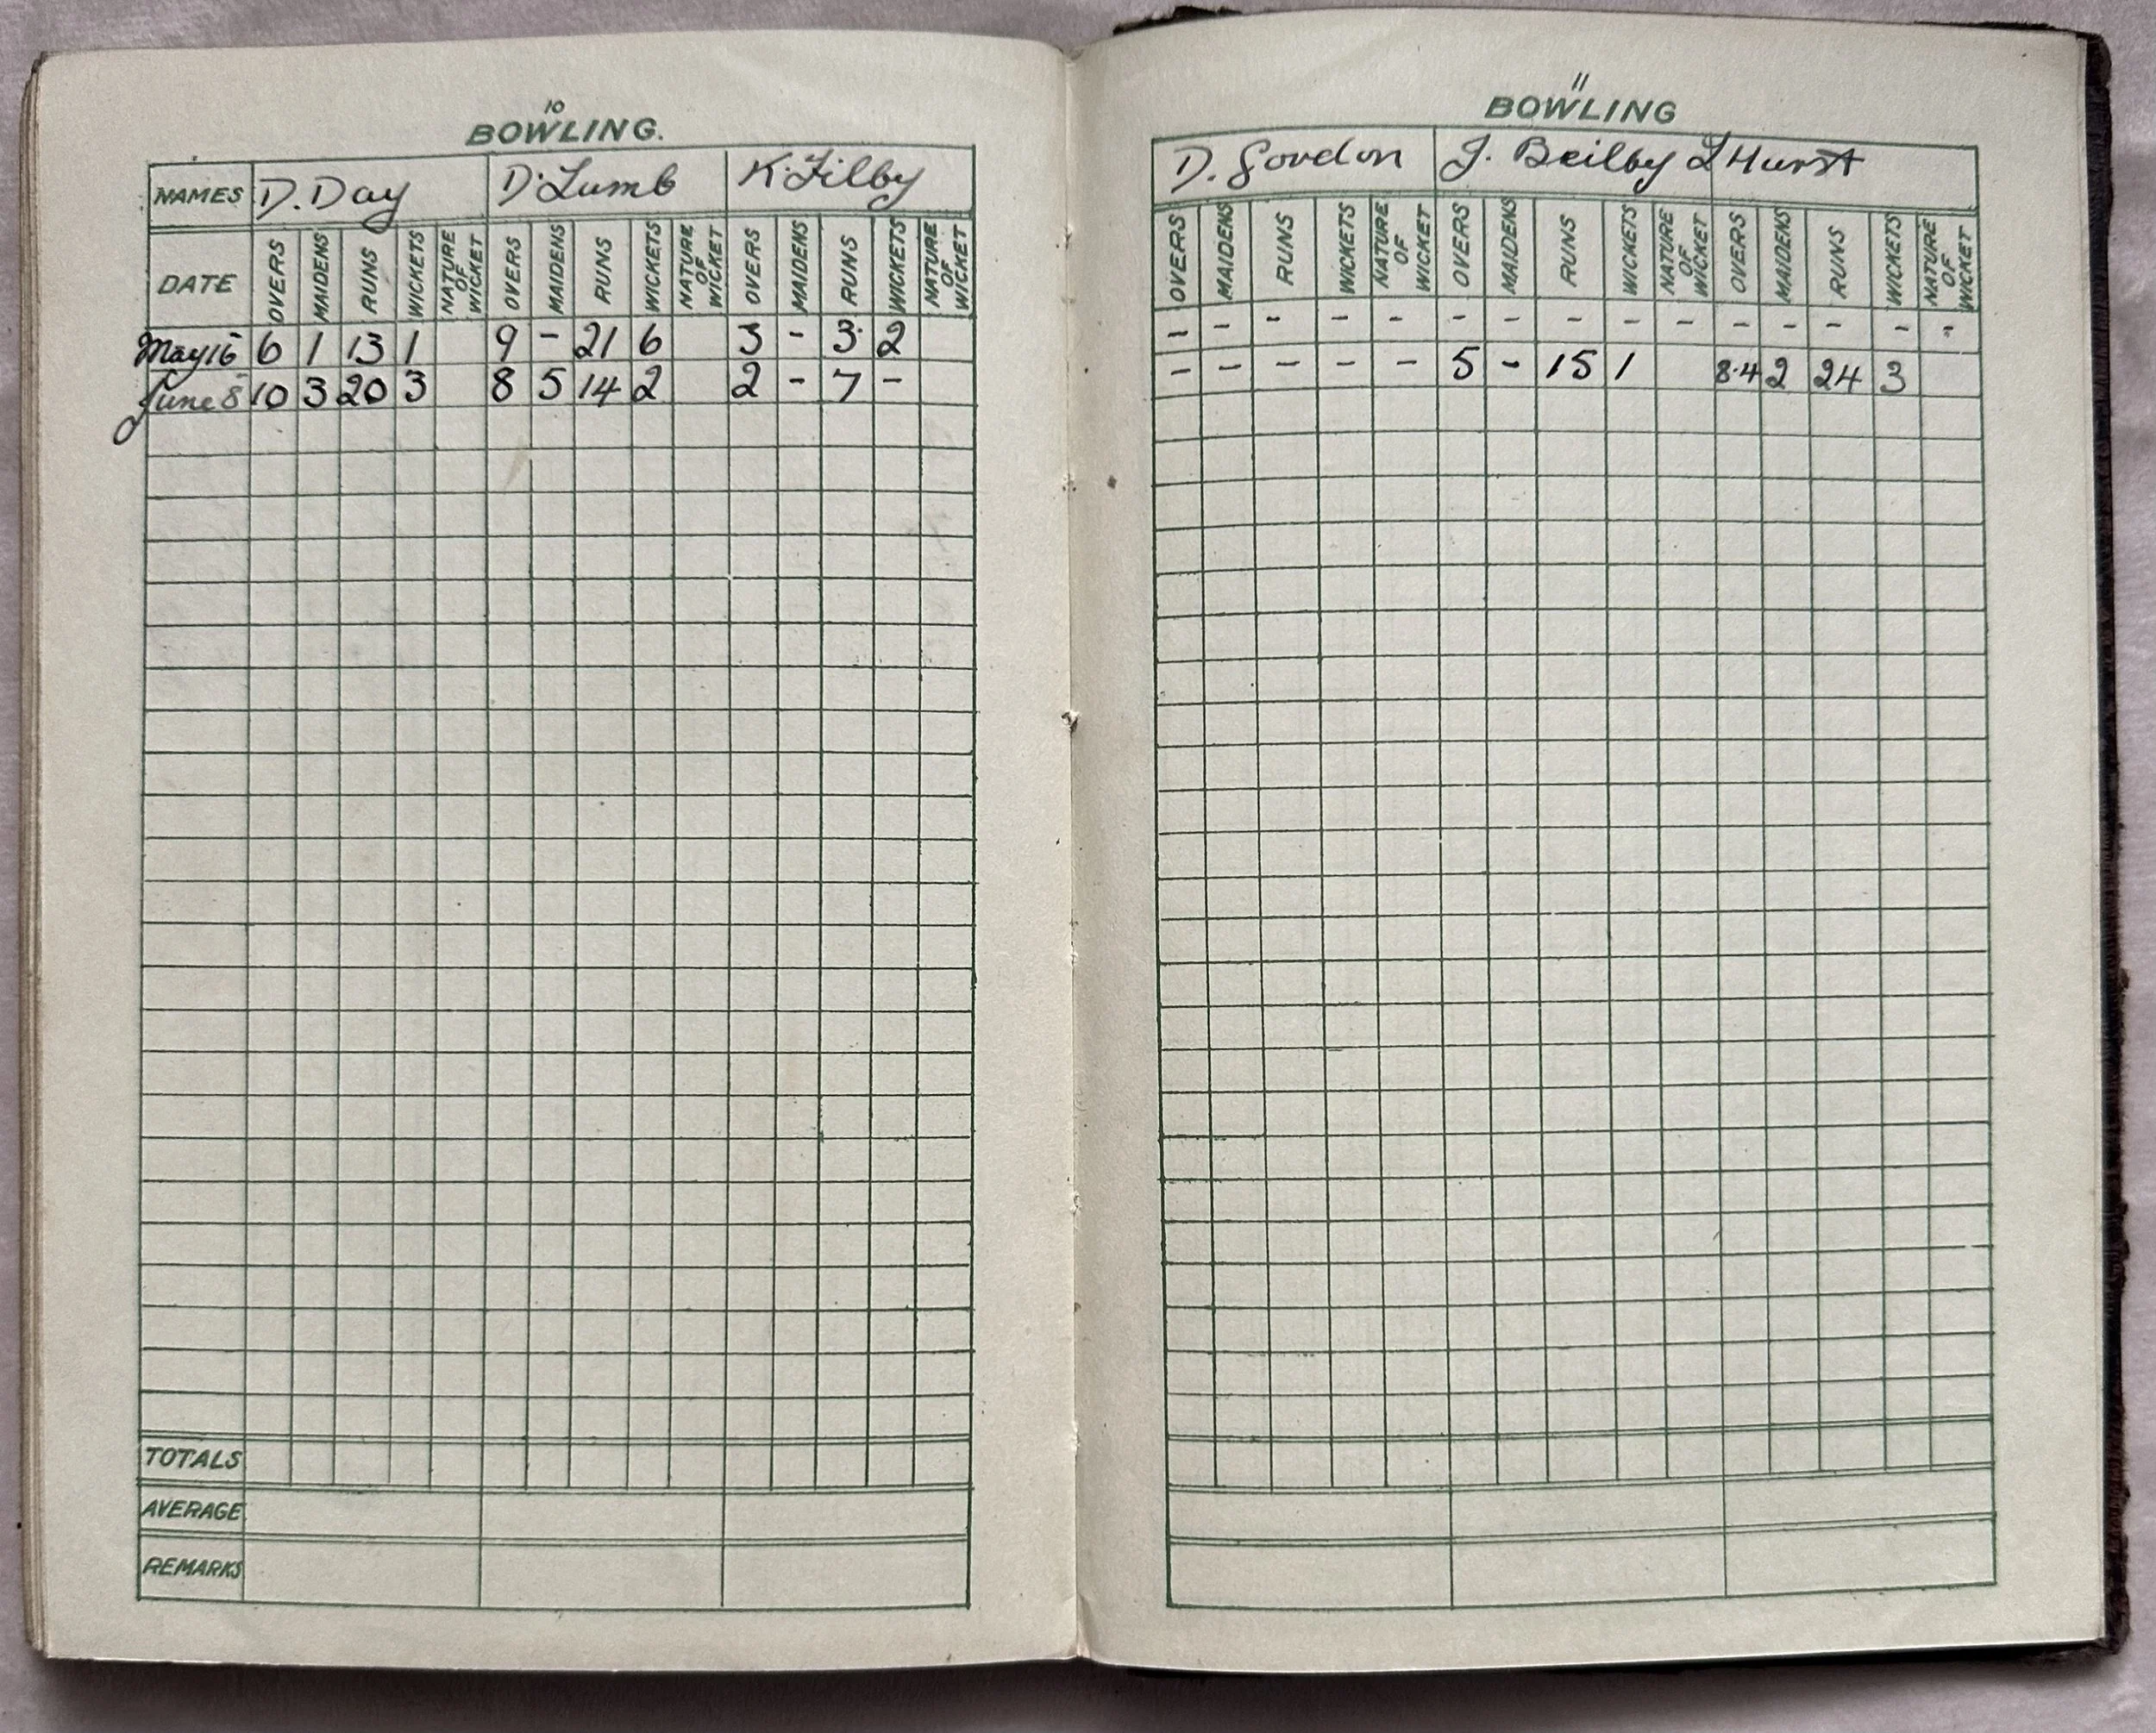 10
BOWLING.
NAMES D. Day D. Lumb K. Filby
DATE OVERS MAIDENS RUNS WICKETS NATURE OF WICKET OVERS MAIDENS RUNS WICKETS NATURE OF WICKET OVERS MAIDENS RUNS WICKETS NATURE OF WICKET
May 16 6 1 13 1 9 - 21 6 3 - 3 2
June 8 10 3 20 3 8 5 14 2 2 - 7 -
TOTALS
AVERAGE
REMARKS
11
BOWLING
D. Gordon J. Beilby L Hurst
OVERS MAIDENS RUNS WICKETS NATURE OF WICKET OVERS MAIDENS RUNS WICKETS NATURE OF WICKET OVERS MAIDENS RUNS WICKETS NATURE OF WICKET
- - - - - - - - - - - - - - -
- - - - - 5 - 15 1 8.4 2 24 3